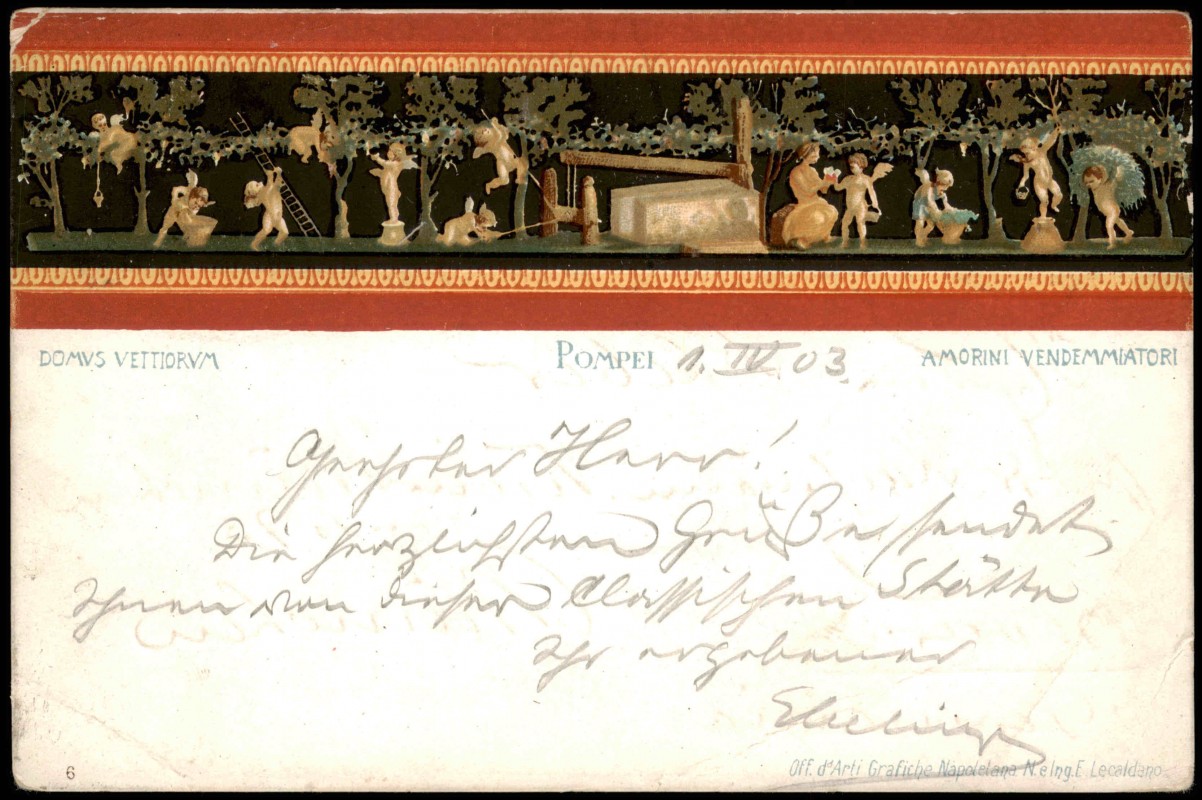 DOMVS VETTIORVM POMPEI 1. IV. 03. AMORINI VENDEMMIATORI
Geehrter Herr!
Die herzlichsten Grüße sendet
Ihnen von dieser Classischen Stätte
Ihr ergebener
6
Off. d'Arti Grafiche Napoletana N. e Ing. E. Lecaldano